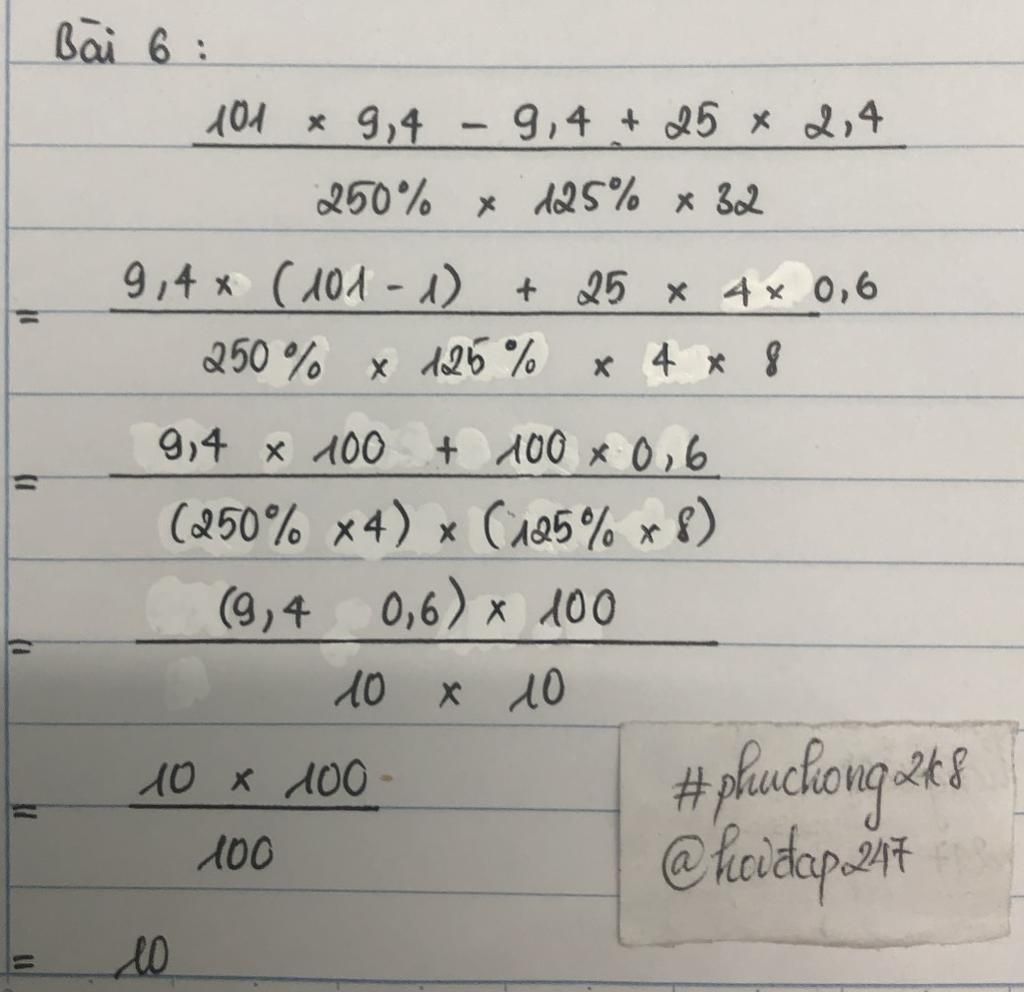 Bài 6 :
101 × 9,4 - 9,4 + 25 × 2,4
250% × 125% × 32
9,4 × (101 - 1) + 25 × 4 × 0,6
=
250% × 125% × 4 × 8
9,4 × 100 + 100 × 0,6
=
(250% × 4) × (125% × 8)
(9,4 0,6) × 100
=
10 × 10
10 × 100
=
100
= 10
#phuchong2k8
@hoidap247